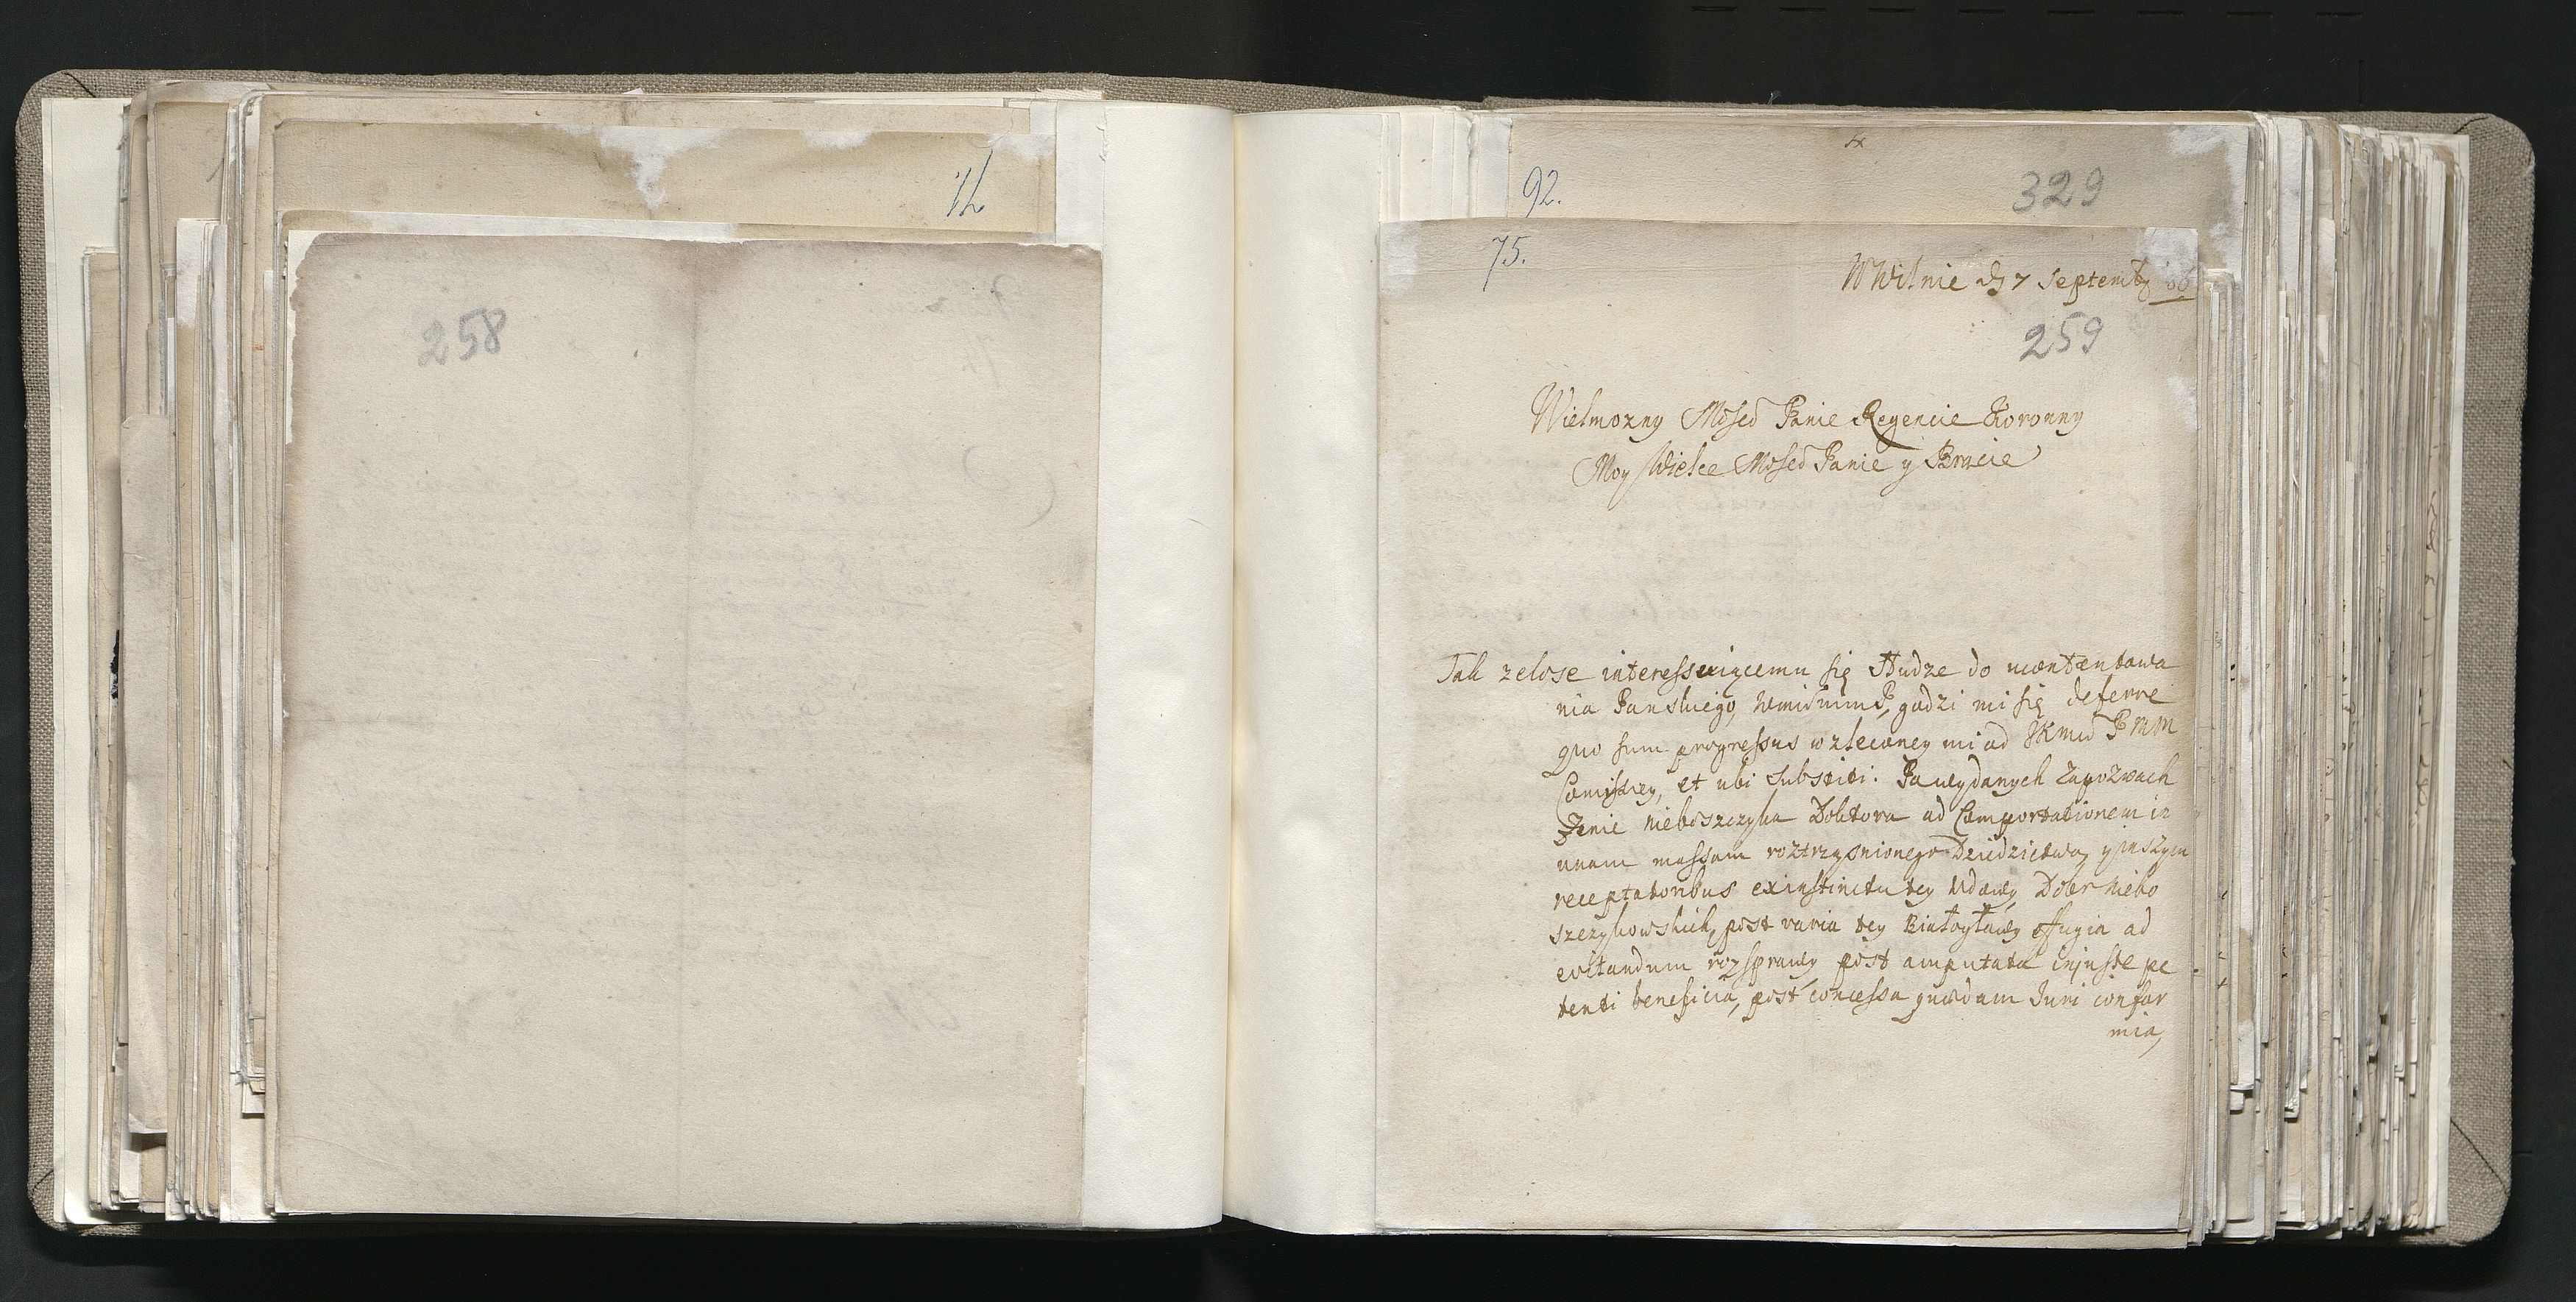 12
258
92.
329
75.
W Wilnie d 7 Septembr 86
259
Wielmozny Mosci Panie Regencie Koronny
Moy Wielce Mosci Panie y Bracie
Tak zelose interessuiącemu się Słudze do ucontentowa
nia Panskiego, godzi mi się deferre
quo sum progressus w zleconey mi od JKmci PMM
Comissiey, et ubi substiti. Po wydanych Zapozwach
Zenie nieboszczyka Doktora ad Comportationem in
unam massam roztrząsnionego Dziedzictwa, y inszym
receptatoribus ex instinctu tey Wdowy, Dobr niebo
szczykowskich, post varia tey Białogłowy effugia ad
evitandum rozsprawy, post amputata injuste pe
tenti beneficia, post concessa quaedam Juri confor
mia,